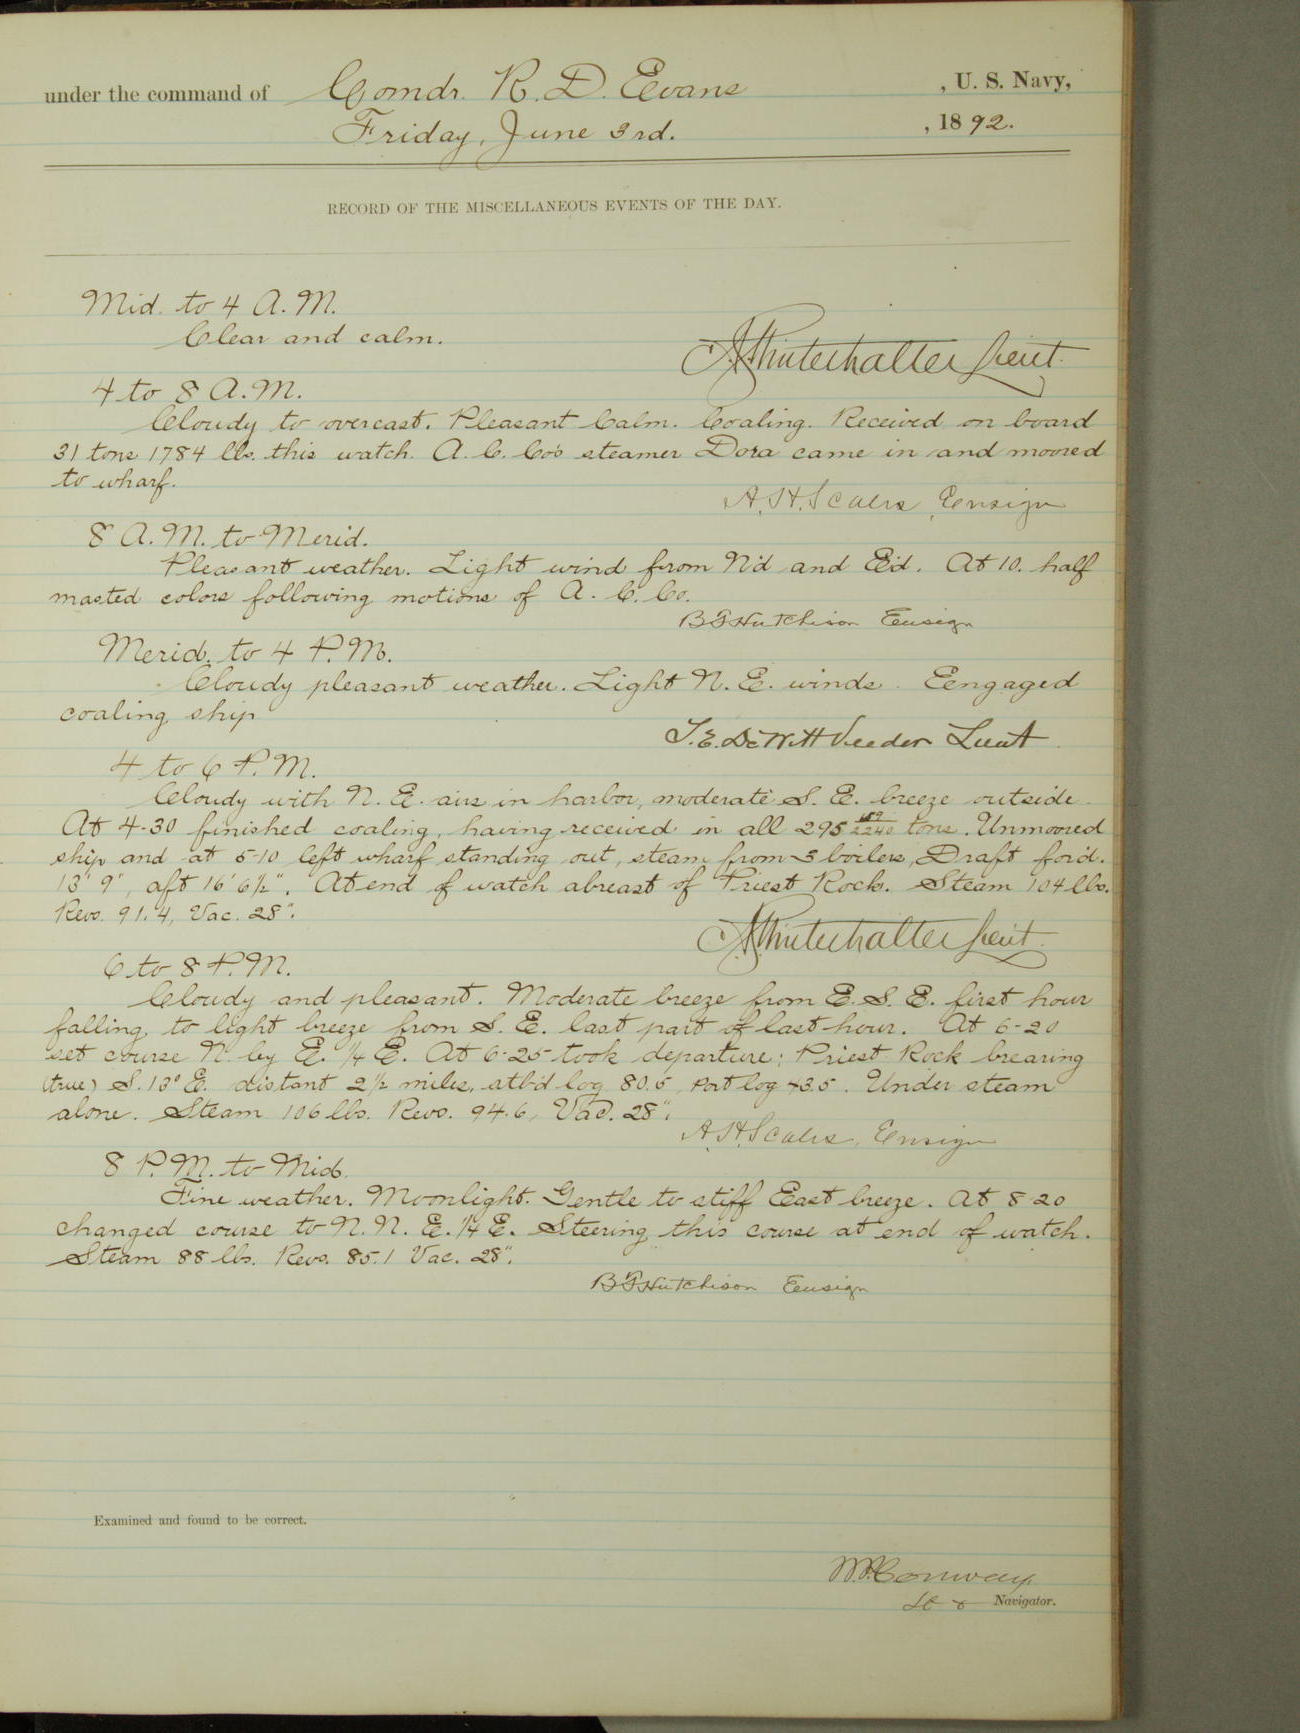 under the command of Comdr. R. D. Evans , U. S. Navy,
Friday, June 3rd. , 1892.
RECORD OF THE MISCELLANEOUS EVENTS OF THE DAY.
Mid. to 4 A. M.
Clear and calm.
A. G. Winterhalter Lieut.
4 to 8 A. M.
Cloudy to overcast. Pleasant Calm. Coaling. Received on board
31 tons 1784 lbs. this watch. A. C. Co's steamer Dora came in and moored
to wharf.
A. H. Scales, Ensign
8 A. M. to Merid.
Pleasant weather. Light wind from N'd and E'd. At 10. half
masted colors following motions of A. C. Co.
B F Hutchison Ensign
Merid. to 4 P. M.
Cloudy pleasant weather. Light N. E. winds. Eengaged
coaling ship
T. E. DeWitt Veeder Lieut.
4 to 6 P. M.
Cloudy with N. E. airs in harbor, moderate S. E. breeze outside.
At 4-30 finished coaling, having received in all 295 159/2240 tons. Unmoored
ship and at 5-10 left wharf standing out, steam from 3 boilers, Draft for'd.
13' 9", aft 16' 6½". At end of watch abreast of Priest Rock. Steam 104 lbs.
Revs. 91.4, Vac. 28".
A. G. Winterhalter Lieut.
6 to 8 P. M.
Cloudy and pleasant. Moderate breeze from E. S. E. first hour
falling to light breeze from S. E. last part of last hour. At 6-20
set course N. by E. ¼ E. At 6-25 took departure; Priest Rock brearing
(true) S. 13° E. distant 2½ miles, stb'd log 80.5, Port log 43.5. Under steam
alone. Steam 106 lbs. Revs. 94.6, Vac. 28".
A. H. Scales, Ensign
8 P. M. to Mid.
Fine weather. Moonlight. Gentle to stiff East breeze. At 8-20
changed course to N. N. E. ¼ E. Steering this course at end of watch.
Steam 88 lbs. Revs. 85.1 Vac. 28".
B F Hutchison Ensign
Examined and found to be correct.
W. P. Conway
Lt & Navigator.